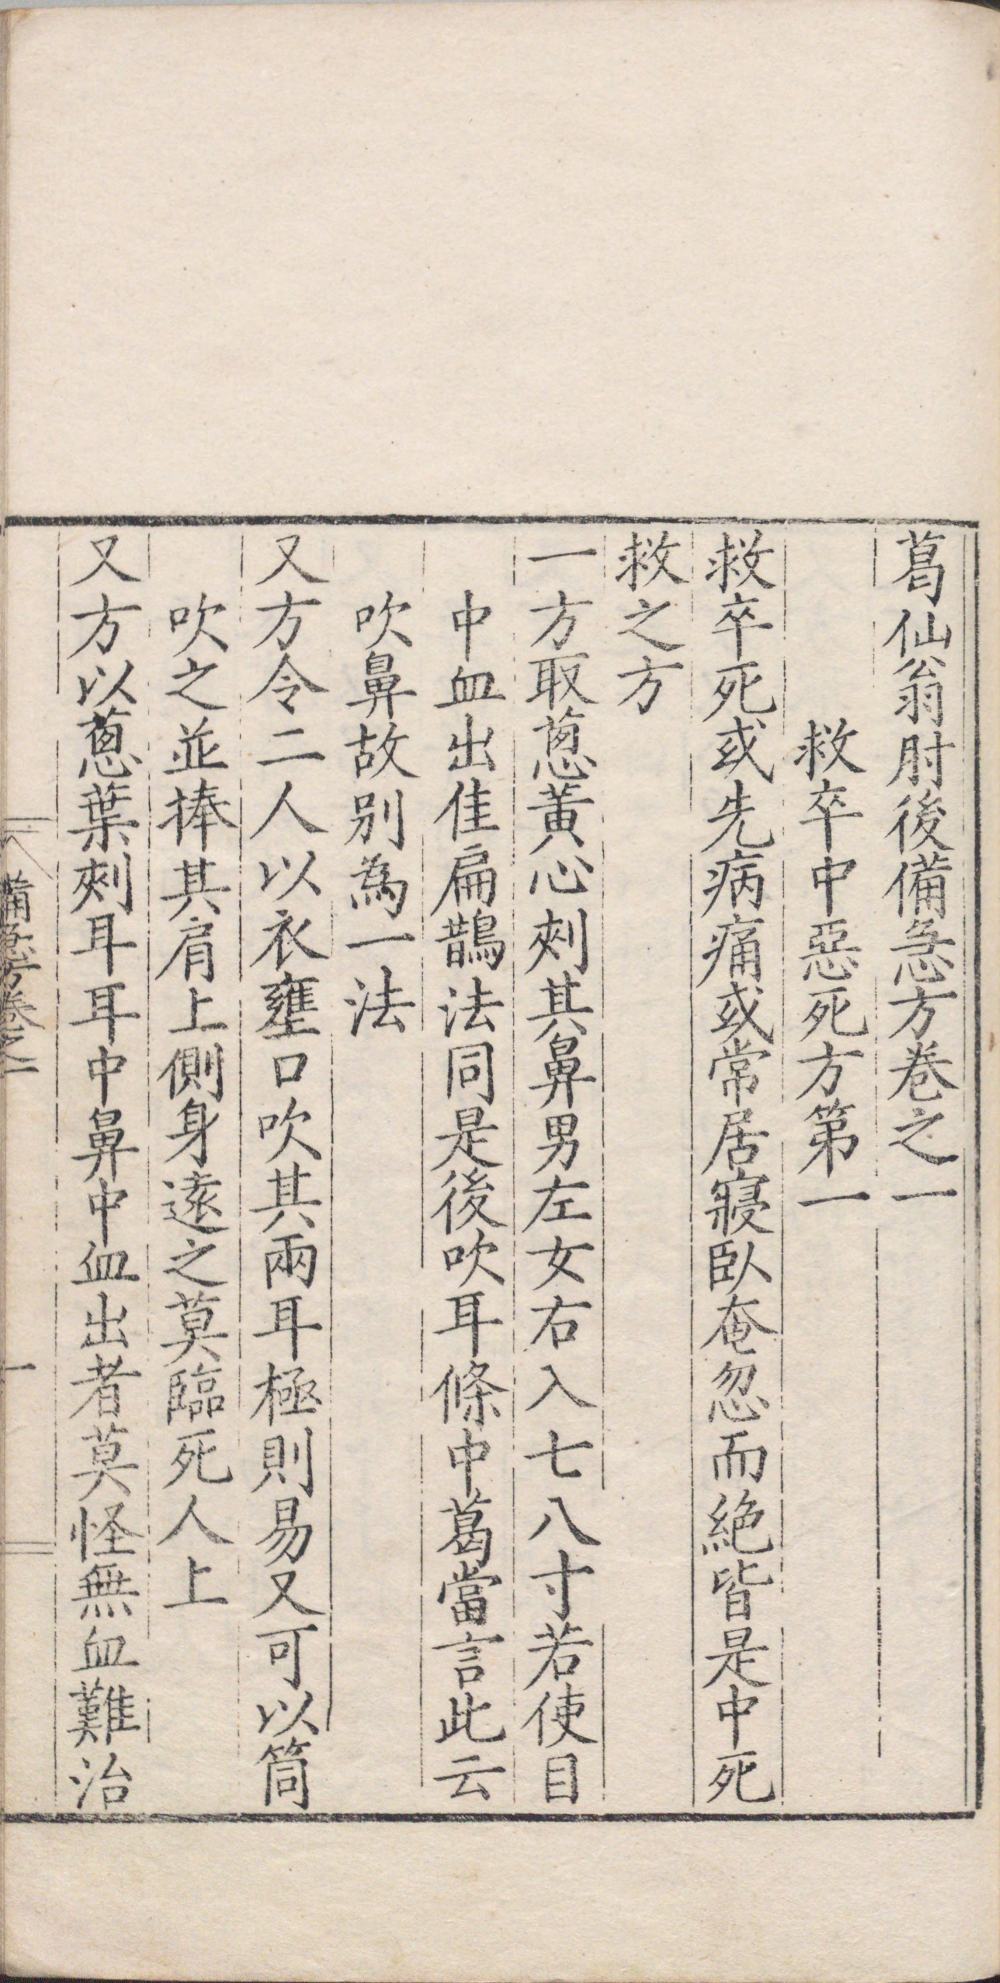 葛仙翁肘後備急方卷之一
救卒中惡死方第一
救卒死或先病痛或常居寢臥奄忽而絶皆是中死
救之方
一方取葱黃心刾其鼻男左女右入七八寸若使目
中血出佳扁鵲法同是後吹耳條中葛當言此云
吹鼻故别為一法
又方令二人以衣壅口吹其兩耳極則易又可以筒
吹之並捧其肩上側身遠之莫臨死人上
又方以葱葉刾耳耳中鼻中血出者莫怪無血難治
備急方卷之一
一